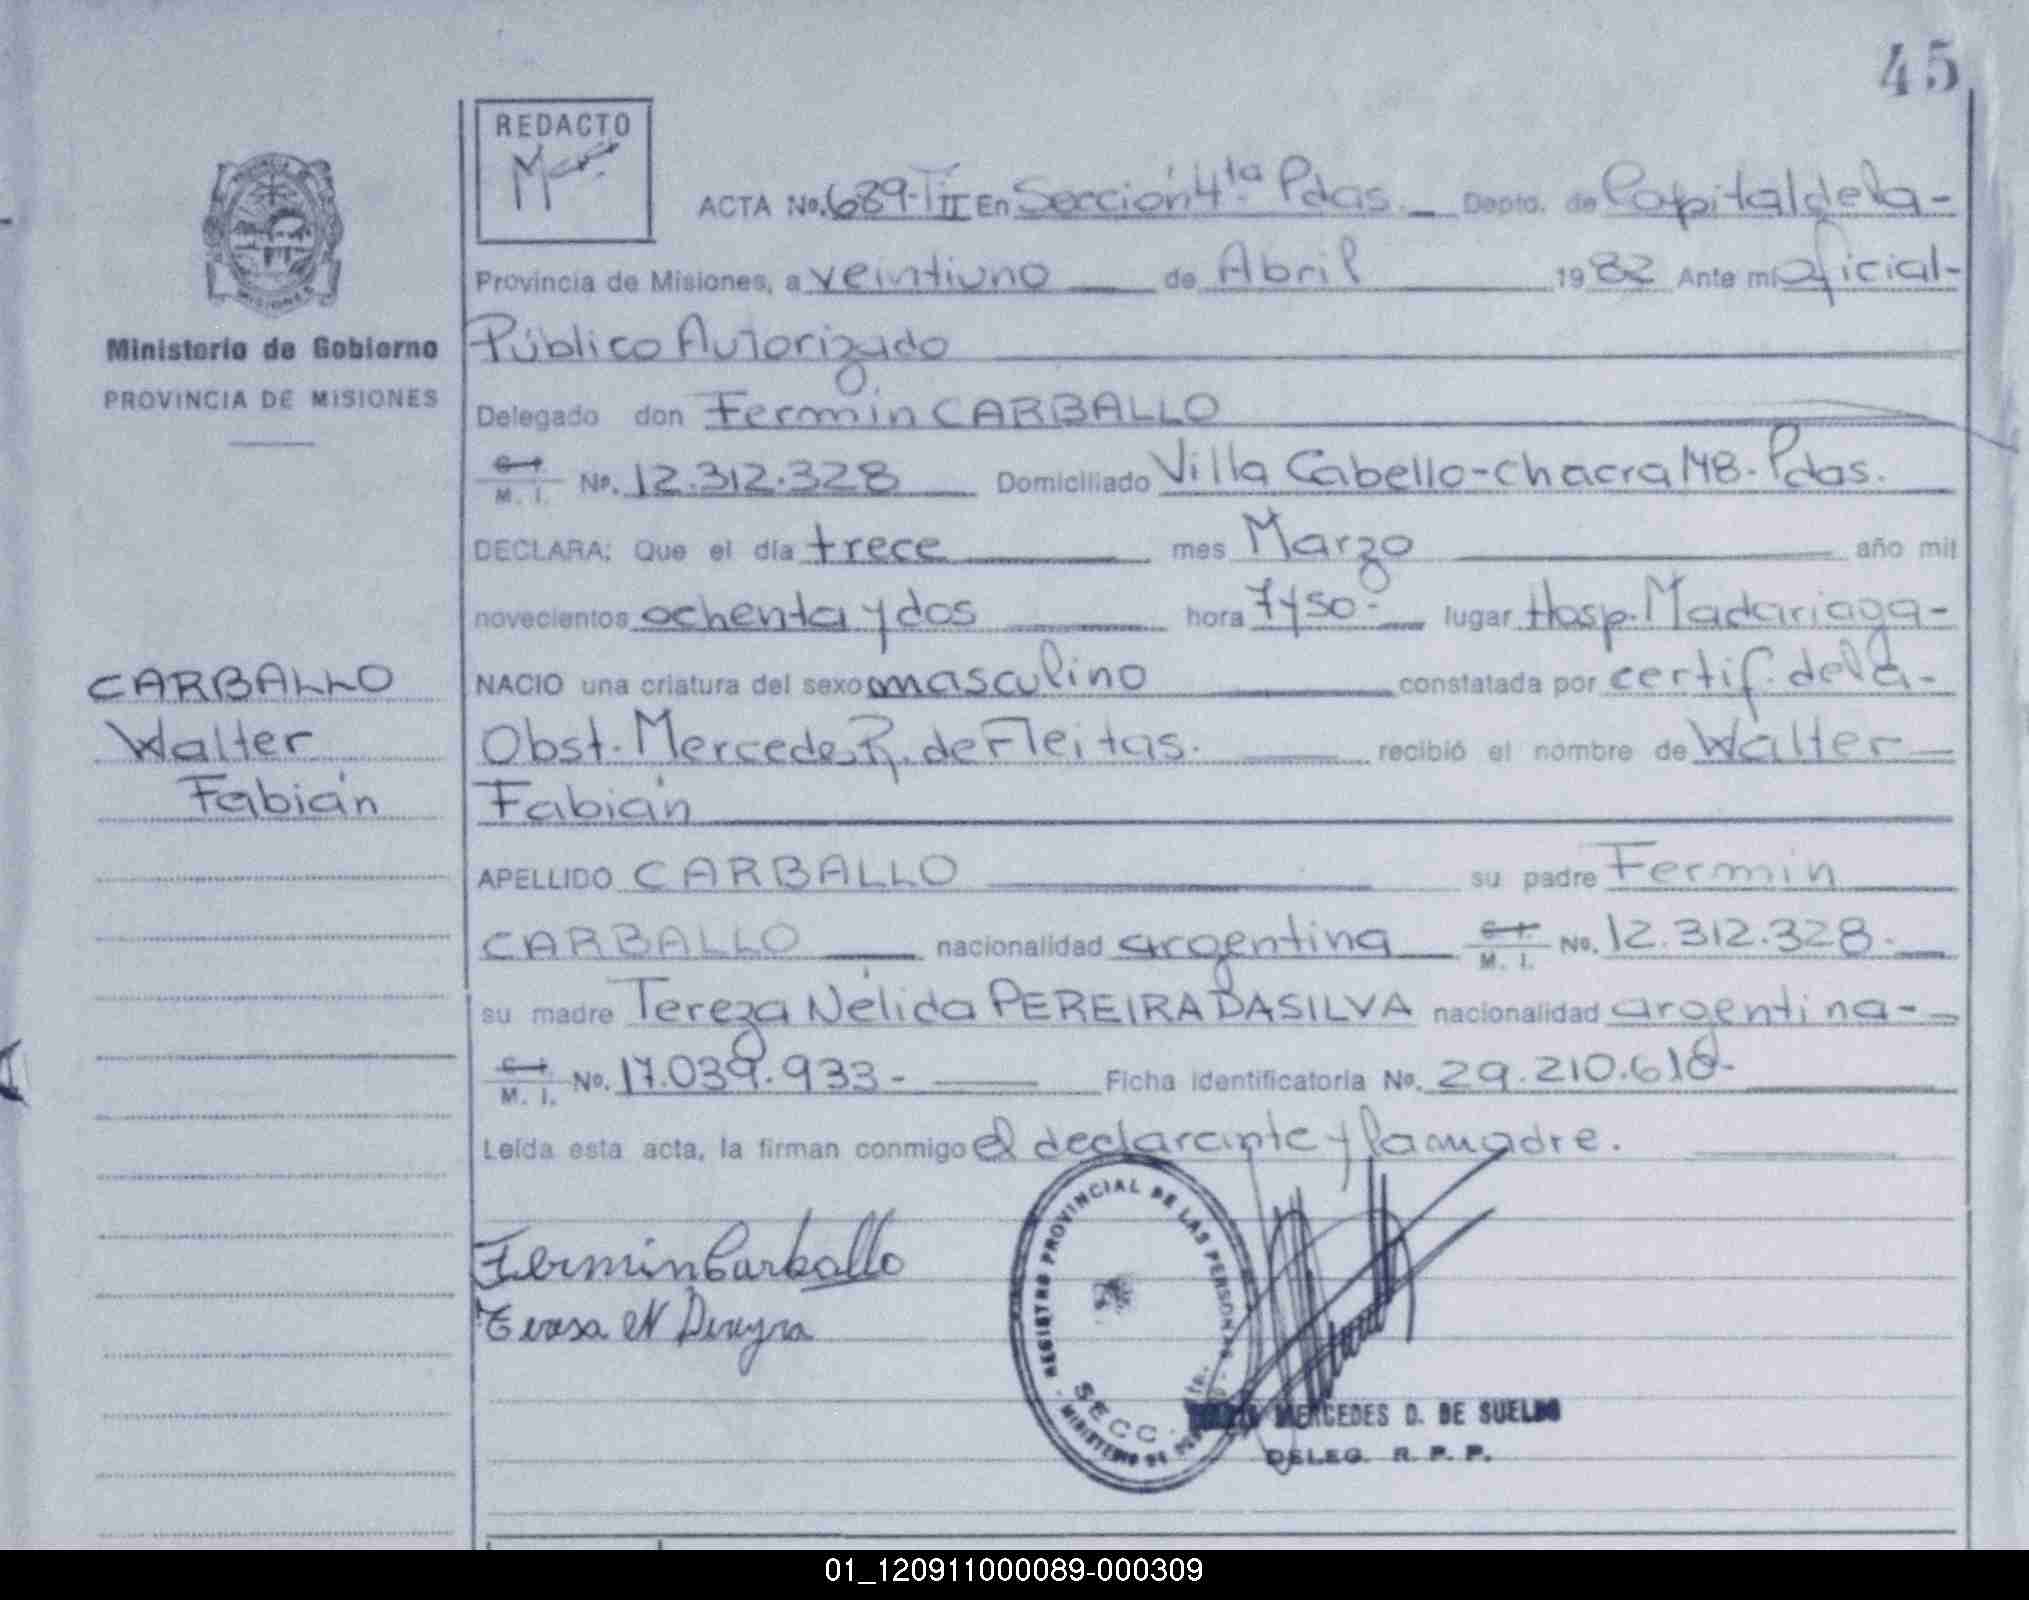 45
REDACTO
ACTA No. 689-TII En Sección 4ta. Pdas. Depto. de Capital de la-
Provincia de Misiones, a veintiuno de Abril 1982 Ante mi Oficial-
Público Autorizado
Ministerio de Gobierno
PROVINCIA DE MISIONES
Delegado don Fermín CARBALLO
C. I. M. I. No. 12.312.328 Domiciliado Villa Cabello-Chacra 148-Pdas.
DECLARA: Que el día trece mes Marzo año mil
novecientos ochenta y dos hora 7y50- lugar Hosp. Madariaga-
CARBALLO
Walter
Fabián
NACIO una criatura del sexo masculino constatada por certif. de la-
Obst. Mercedes R. de Fleitas. recibió el nombre de Walter
Fabián
APELLIDO CARBALLO su padre Fermín
CARBALLO nacionalidad argentina C. I. M. I. No. 12.312.328.
su madre Tereza Nélida PEREIRA DASILVA nacionalidad argentina-
C. I. M. I. No. 17.039.933- Ficha identificatoria No. 29.210.618-
Leída esta acta, la firman conmigo el declarante y la madre.
Fermin Carballo
Teresa N Pereyra
REGISTRO PROVINCIAL DE LAS PERSONAS
SECC.
MINISTERIO DE
MERCEDES D. DE SUELDO
DELEG. R. P. P.
01_120911000089-000309